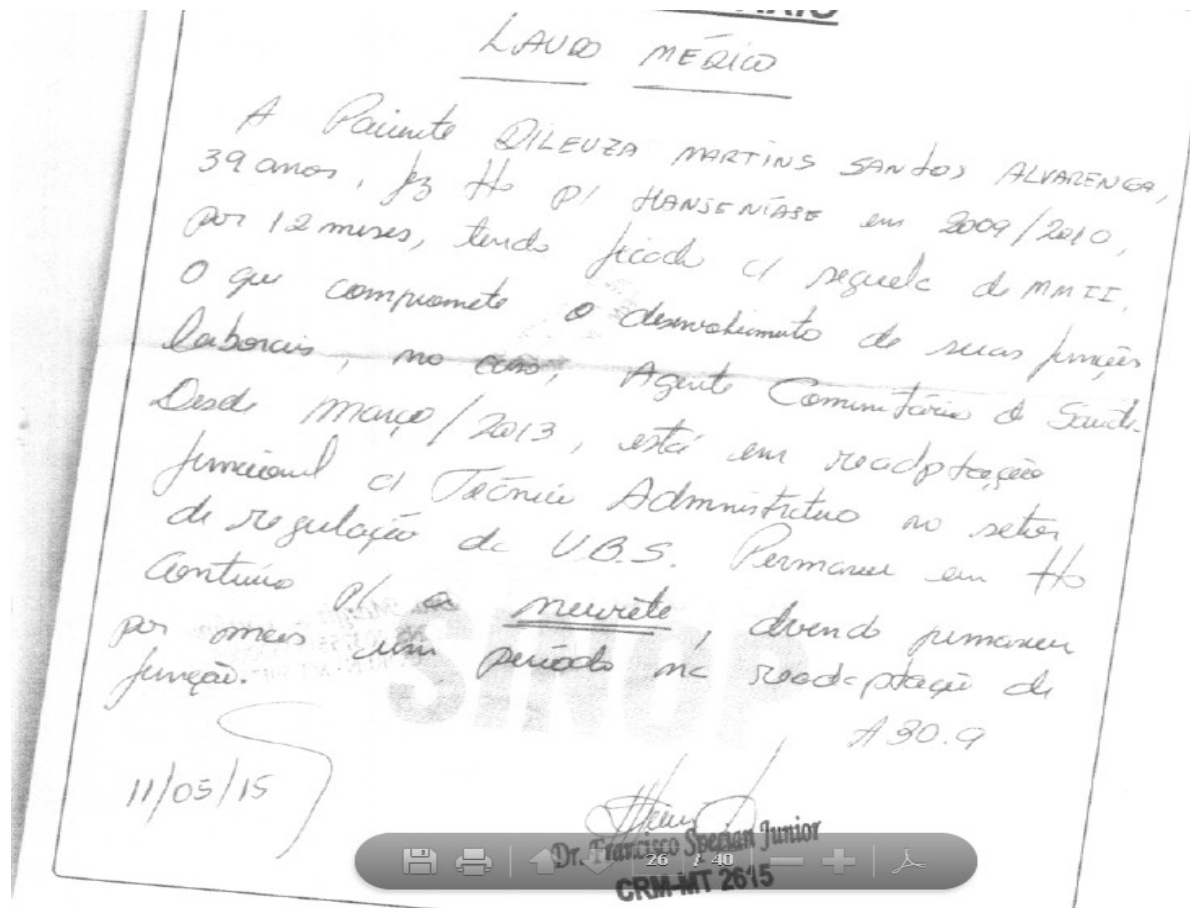 LAUDO MÉDICO
A Paciente DILEUZA MARTINS SANTOS ALVARENGA,
39 anos, fez tto p/ HANSENÍASE em 2009/2010,
por 12 meses, tendo ficado c/ sequela de MMII,
O que compromete o desenvolvimento de suas funções
laborais, no caso, Agente Comunitário de Saúde.
Desde março/2013, está em readaptação
funcional c/ Técnico Administrativo no setor
de regulação da U.B.S. Permanece em tto
contínuo p/ a neurite, devendo permanecer
por mais um período na readaptação de
função.
A30.9
11/05/15
SINOP
Dr. Francisco Specian Junior
26 / 40
CRM-MT 2615